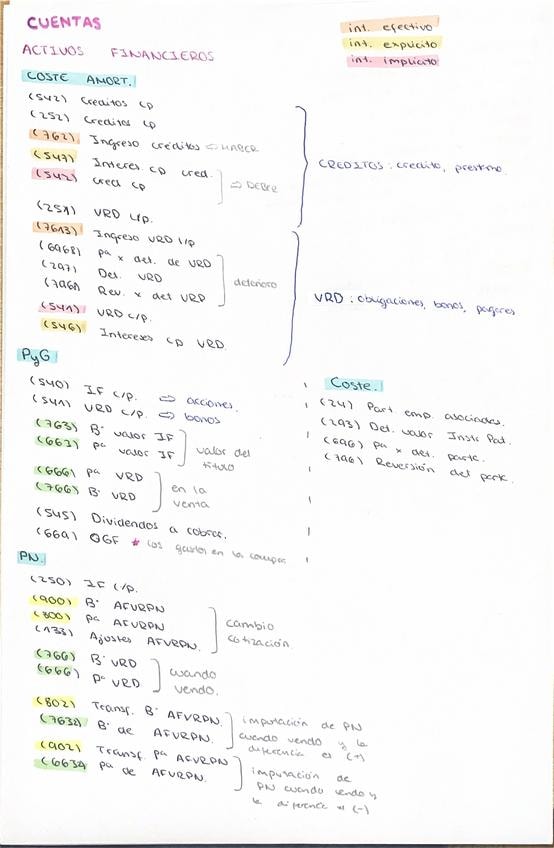 CUENTAS
ACTIVOS FINANCIEROS
int. efectivo
int. explícito
int. implícito
COSTE AMORT.
(542) Creditos cp
(252) Creditos lp
(762) Ingreso créditos ⇨ HABER
(547) Interes. cp cred.
(542) cred cp
⇨ DEBE
CREDITOS: credito, prestamo.
(251) VRD l/p.
(7613) Ingreso VRD l/p
(6968) pª x det. de VRD
(297) Det. VRD
(796) Rev. x det VRD
deterioro
(541) VRD c/p.
(546) Intereses cp VRD.
VRD: obligaciones, bonos, pagares
PyG
(540) IF c/p. ⇨ acciones.
(541) VRD c/p. ⇨ bonos
(763) Bº valor IF
(663) pª valor IF
valor del título
(666) pª VRD
(766) Bº VRD
en la venta
(545) Dividendos a cobrar.
(669) OGF * los gastos en la compra
Coste.
(24) Part. emp. asociadas.
(293) Det. valor Instr Pat.
(696) pª x det. partc.
(796) Reversión det partc.
PN.
(250) IF l/p.
(900) Bº AFVRPN
(800) pª AFVRPN
(133) Ajustes AFVRPN.
cambio cotización
(766) Bº VRD
(666) Pª VRD
cuando vendo.
(802) Transf. Bº AFVRPN.
(7632) Bº de AFVRPN.
imputación de PN
cuando vendo y la
diferencia es (+)
(902) Transf. pª AFVRPN
(6632) pª de AFVRPN.
imputación de
PN cuando vendo y
la diferencia es (-)